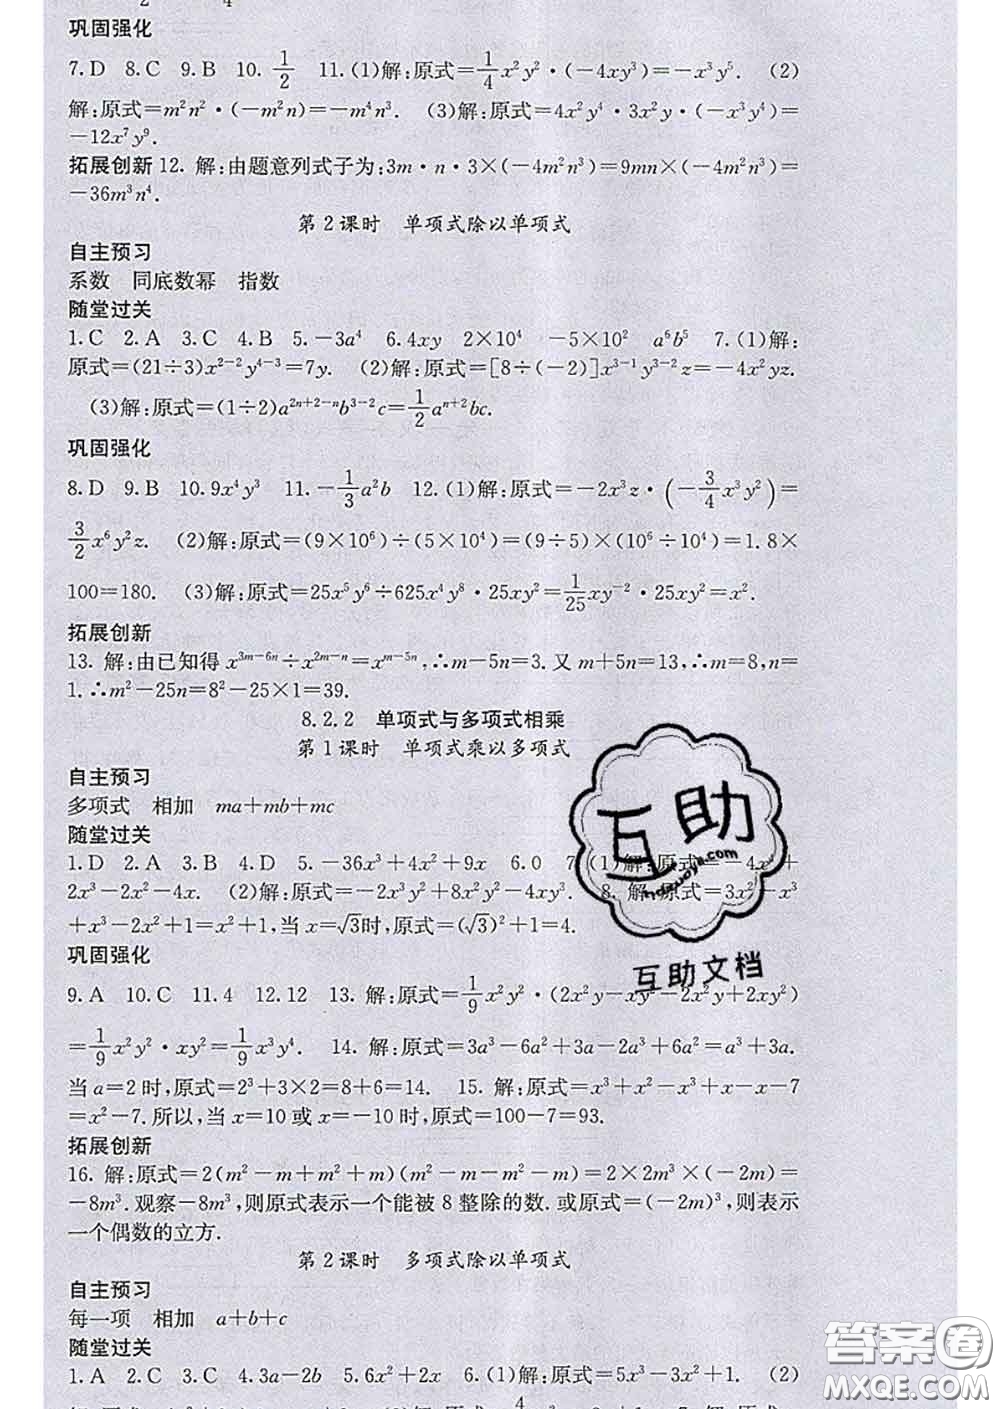 巩固强化
7. D 8. C 9. B 10. 1/2 11. (1)解:原式=1/4x²y²·(-4xy³)=-x³y⁵. (2)
解:原式=m²n²·(-m²n)=-m⁴n³. (3)解:原式=4x²y⁴·3x²y·(-x³y⁴)=
-12x⁷y⁹.
拓展创新 12. 解:由题意列式子为:3m·n·3×(-4m²n³)=9mn×(-4m²n³)=
-36m³n⁴.
第2课时 单项式除以单项式
自主预习
系数 同底数幂 指数
随堂过关
1. C 2. A 3. C 4. B 5. -3a⁴ 6. 4xy 2×10⁴ -5×10² a⁶b⁵ 7. (1)解:
原式=(21÷3)x²⁻²y⁴⁻³=7y. (2)解:原式=[8÷(-2)]x³⁻¹y³⁻²z=-4x²yz.
(3)解:原式=(1÷2)a²ⁿ⁺²⁻ⁿb³⁻²c=1/2aⁿ⁺²bc.
巩固强化
8. D 9. B 10. 9x⁴y³ 11. -1/3a²b 12. (1)解:原式=-2x³z·(-3/4x³y²)=
3/2x⁶y²z. (2)解:原式=(9×10⁶)÷(5×10⁴)=(9÷5)×(10⁶÷10⁴)=1.8×
100=180. (3)解:原式=25x⁵y⁶÷625x⁴y⁸·25xy²=1/25xy⁻²·25xy²=x².
拓展创新
13. 解:由已知得 x³ᵐ⁻⁶ⁿ÷x²ᵐ⁻ⁿ=xᵐ⁻⁵ⁿ,∴m-5n=3. 又 m+5n=13,∴m=8,n=
1. ∴m²-25n=8²-25×1=39.
8.2.2 单项式与多项式相乘
第1课时 单项式乘以多项式
自主预习
多项式 相加 ma+mb+mc
随堂过关
1. D 2. A 3. B 4. D 5. -36x³+4x²+9x 6. 0 7. (1)解:原式=-4x³+
2x³-2x²-4x. (2)解:原式=-2x³y²+8x²y²-4xy³. 8. 解:原式=3x²-x³
+x³-2x²+1=x²+1,当 x=√3时,原式=(√3)²+1=4.
巩固强化
9. A 10. C 11. 4 12. 12 13. 解:原式=1/9x²y²·(2x²y-xy²-2x²y+2xy²)
=1/9x²y²·xy²=1/9x³y⁴. 14. 解:原式=3a³-6a²+3a-2a³+6a²=a³+3a.
当 a=2 时,原式=2³+3×2=8+6=14. 15. 解:原式=x³+x²-x³+x-x-7
=x²-7. 所以,当 x=10 或 x=-10 时,原式=100-7=93.
拓展创新
16. 解:原式=2(m²-m+m²+m)(m²-m-m²-m)=2×2m²×(-2m)=
-8m³. 观察-8m³,则原式表示一个能被 8 整除的数. 或原式=(-2m)³,则表示
一个偶数的立方.
第2课时 多项式除以单项式
自主预习
每一项 相加 a+b+c
随堂过关
1. A 2. C 3. C 4. 3a-2b 5. 6x²+2x 6. (1)解:原式=5x³-3x²+1. (2)
4
互助
互助文档
答案圈
MXQE.COM